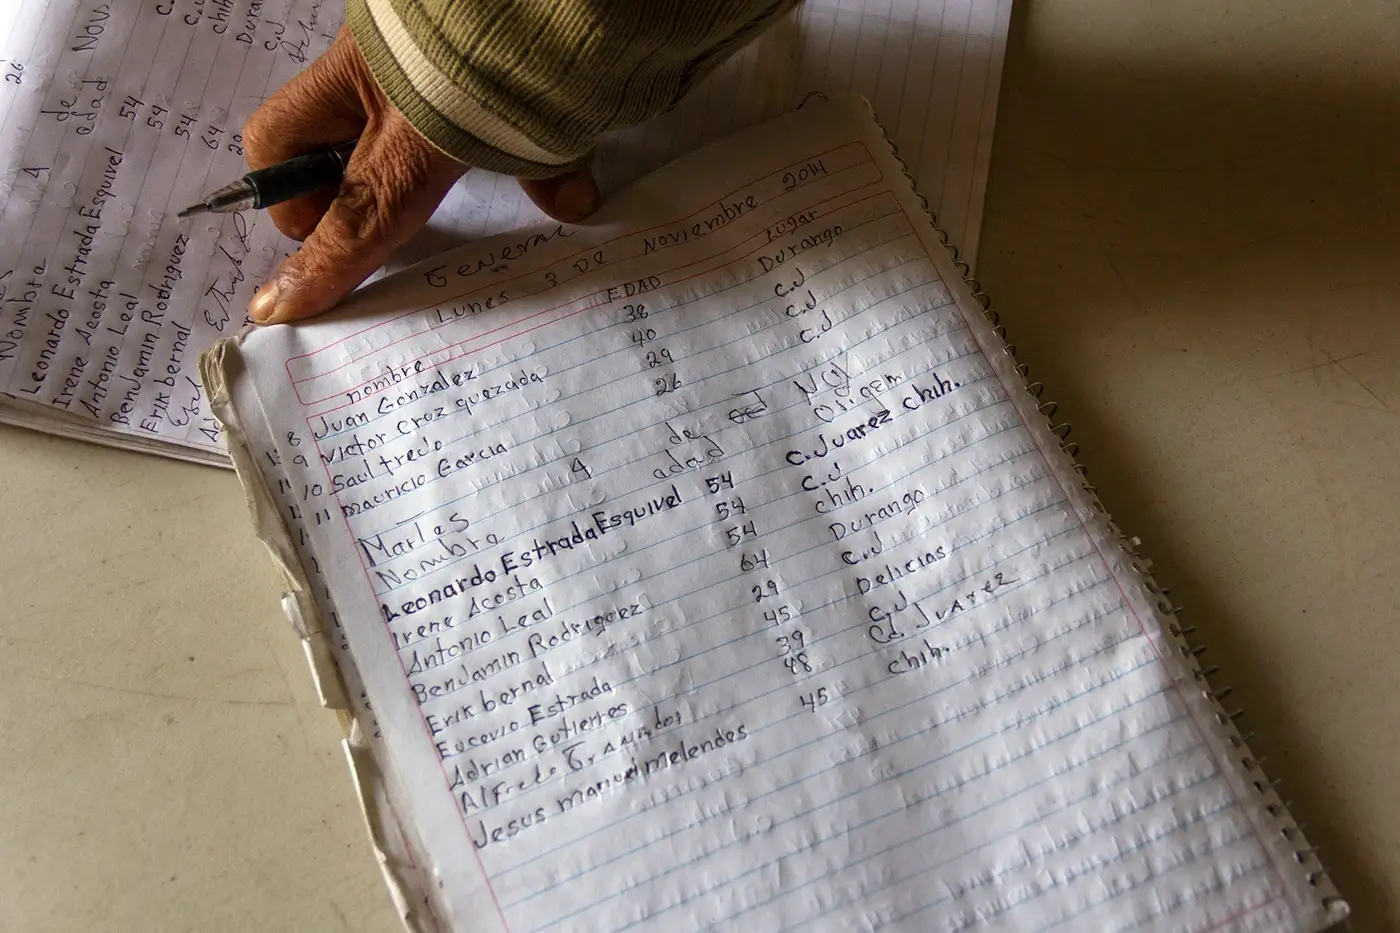 General
Lunes 3 De Noviembre 2014
nombre EDAD Lugar
8 Juan Gonzalez 38 Durango
9 Victor Cruz quezada 40 C.J
10 Saul fredo 29 C.J
11 mauricio Garcia 26 C.J
Martes 4 de NOV
Nombre adad Origem
Leonardo Estrada Esquivel 54 C. Juarez chih.
Irene Acosta 54 C.J
Antonio Leal 54 chih.
Benjamin Rodriguez 64 Durango
Erik bernal 29 C.J
Eucevio Estrada 45 Delicias
Adrian Gutierres 39 C.J
Alfredo 48 Cd. Juarez
Jesus manuel melendes 45 chih.
26
4 de NOV
Nombre adad
Leonardo Estrada Esquivel 54
Irene Acosta 54
Antonio Leal 54 chih
Benjamin Rodriguez 64
Erik bernal 29 C.J